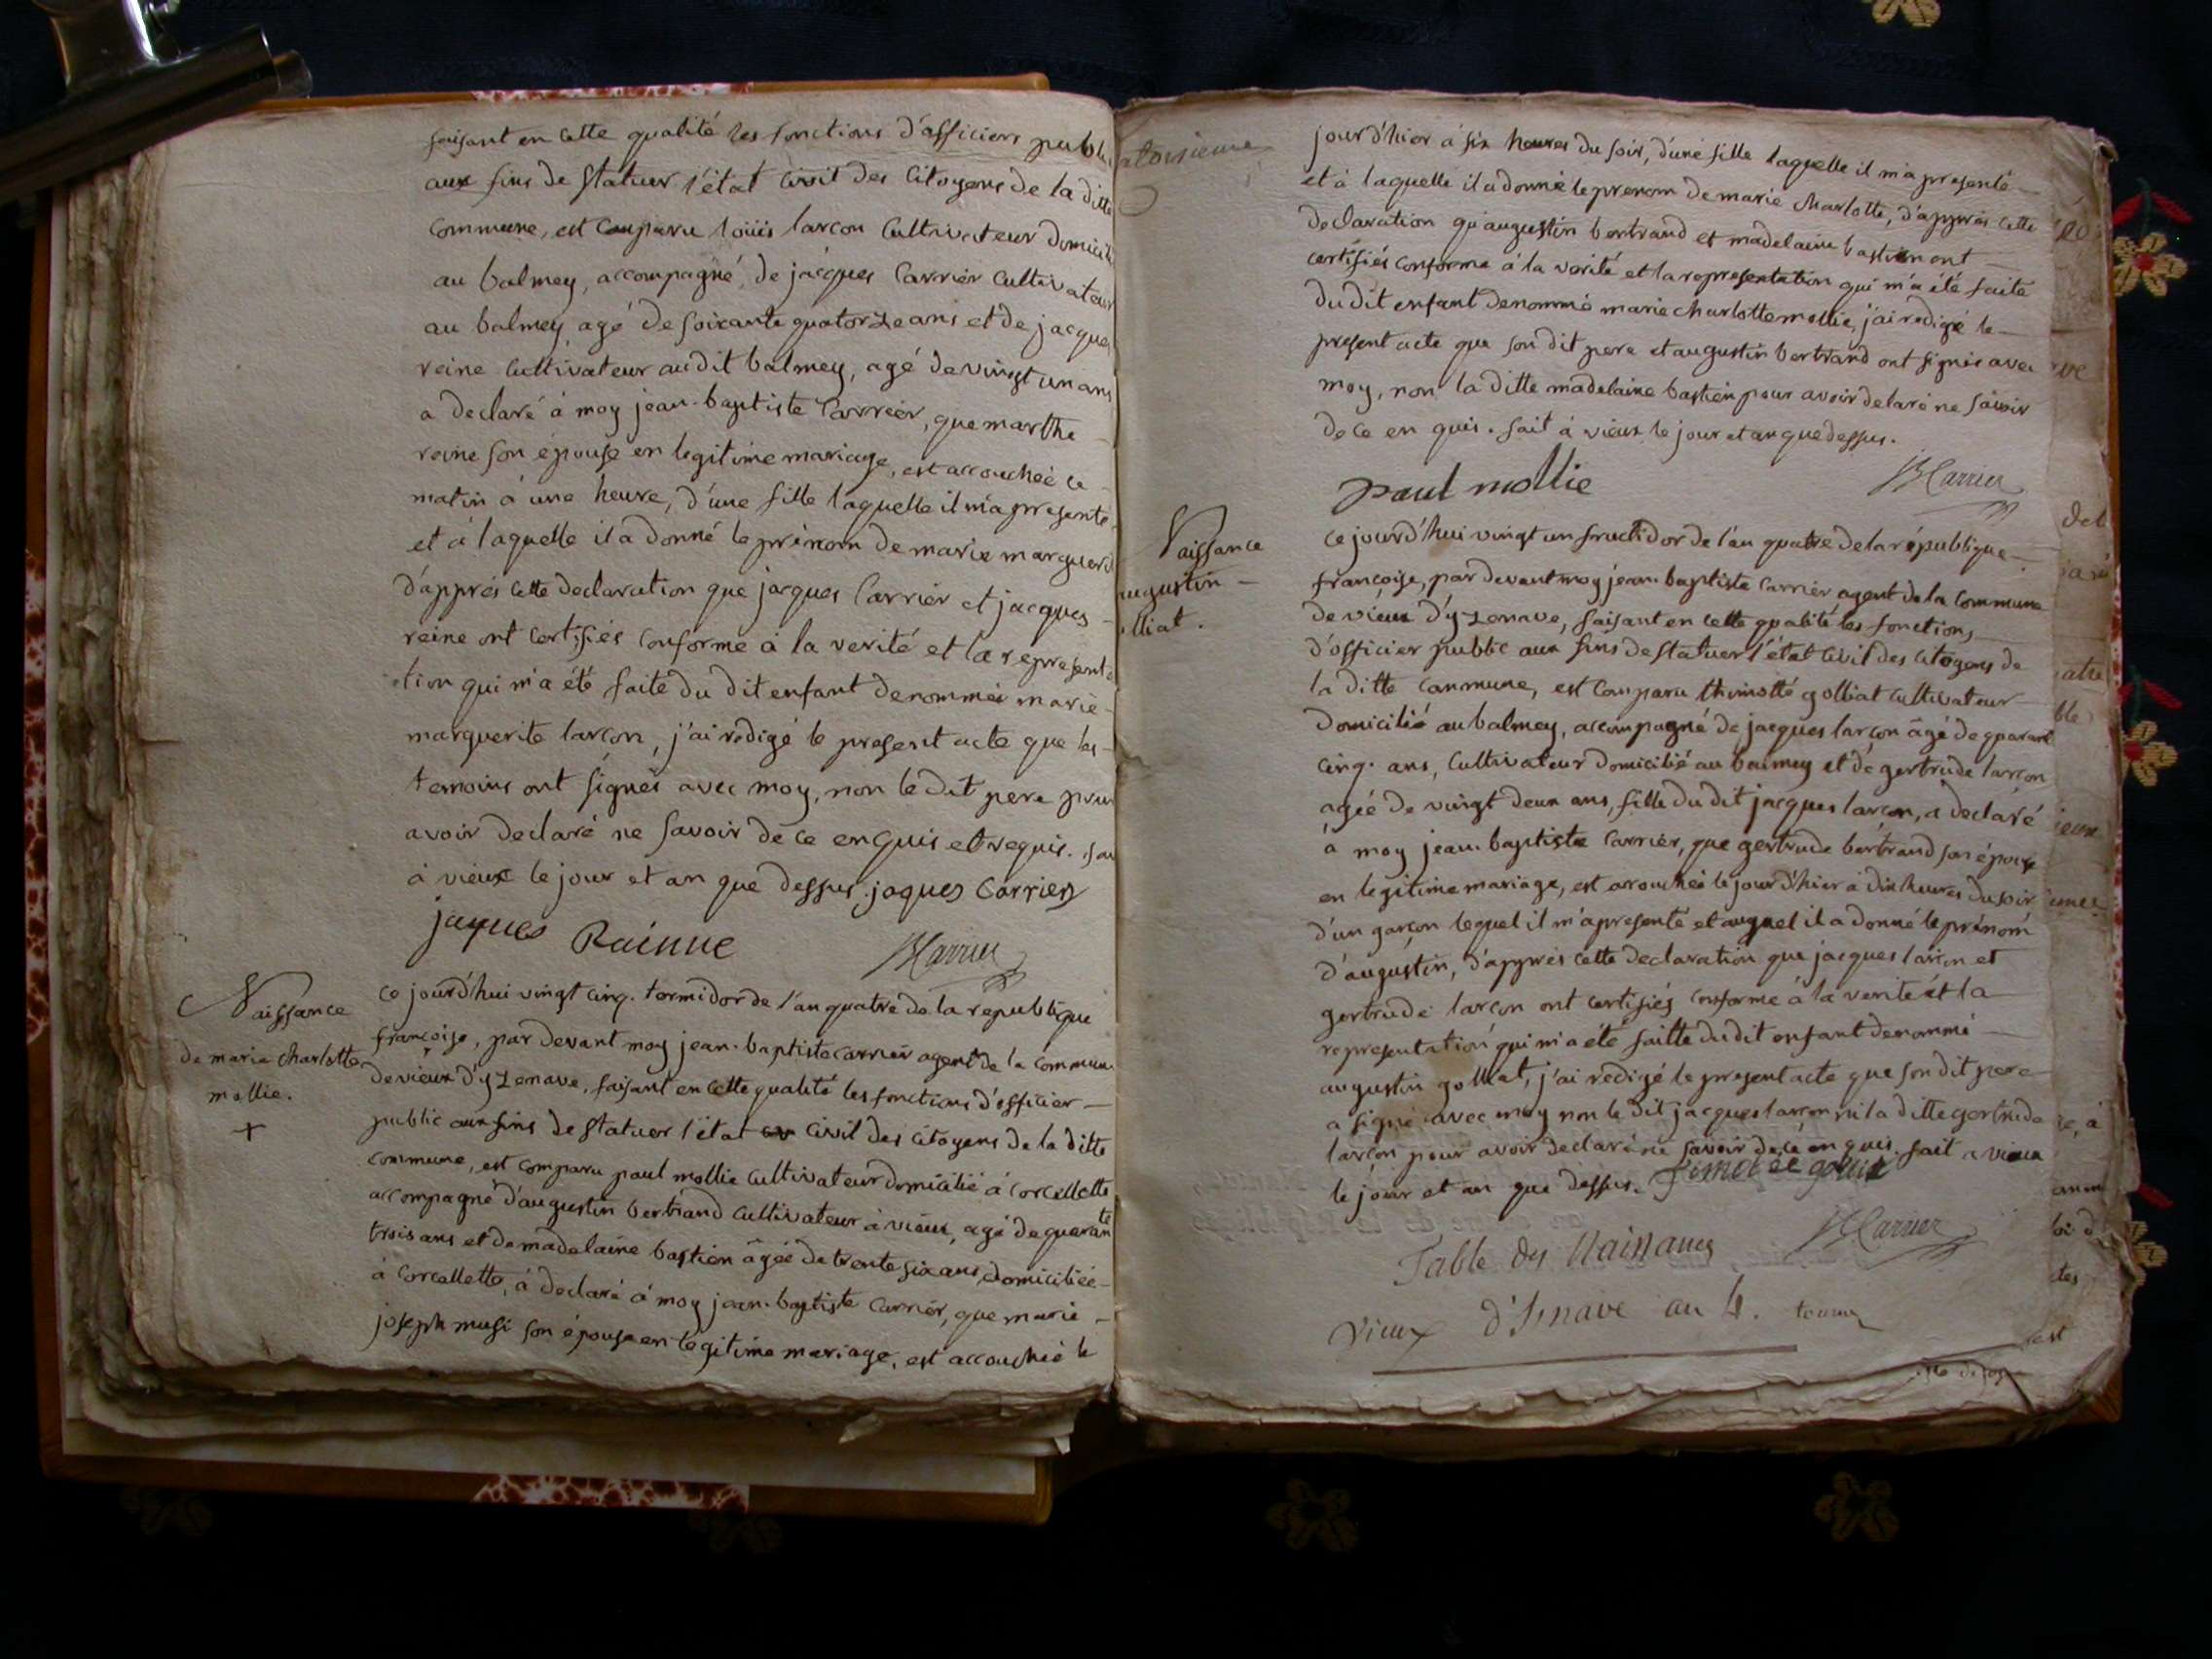 faisant en cette qualité les fonctions d'officiers public
aux fins de statuer l'état civil des Citoyens de la ditte
commune, est comparu loüis larcon Cultivateur domicili
au balmey, accompagné, de jacques Carrier Cultivateur
au balmey agé de soixante quatorze ans et de jacques
reine Cultivateur audit balmey, agé de vingt un ans
a declaré à moy jean-baptiste Carrier, que marthe
reine son épouse en legitime mariage, est accouchée ce
matin à une heure, d'une fille laquelle il m'a presenté
et à laquelle il a donné le prénom de marie marguerit
d'apprés cette declaration que jacques Carrier et jacques
reine ont certifiés conforme à la verité et la represent
tion qui m'a été faite du dit enfant denommée marie
marguerite larcon, j'ai redigé le present acte que les
temoins ont signés avec moy, non le dit pere pour
avoir declaré ne savoir de ce enquis et requis.
à vieux le jour et an que dessus. jaques Carrier
jaques Rainne JBCarrier
Naissance
de marie charlotte
mollie.
+
ce jourd'hui vingt cinq. termidor de l'an quatre de la republique
françoise, par devant moy jean-baptiste carrier agent de la commun
de vieux d'yzenave, faisant en cette qualité les fonctions d'officier
public aux fins de statuer l'état civil des citoyens de la ditte
commune, est comparu paul mollie cultivateur domicilié à corcelette
accompagné d'augustin bertrand cultivateur à vieux, agé de quarante
trois ans et de madelaine bastien âgée de trente six ans, domiciliée
à Corcellette, à declaré à moy jean-baptiste Carrier, que marie
joseph musi son épouse en legitime mariage, est accouchée le
jourd'hier à six heures du soir, d'une fille laquelle il m'a presenté
et à laquelle il a donné le prenom de marie charlotte, d'apprés cette
declaration qu'augustin bertrand et madelaine bastien ont
certifiés conforme à la verité et la representation qui m'a été faite
du dit enfant denommé marie charlotte mollie, j'ai redigé le
present acte que son dit pere et augustin bertrand ont signés avec
moy, non la ditte madelaine bastien pour avoir delaré ne savoir
de ce en quis. fait à vieux le jour et an que dessus.
paul mollie JBCarrier
Naissance
augustin
olliat.
ce jourd'hui vingt un fructidor de l'an quatre de la république
françoise, par devant moy jean-baptiste Carrier agent de la Commune
de vieux d'yzenave, faisant en cette qualité les fonctions
d'officier public aux fins de statuer l'état Civil des citoyens de
la ditte Commune, est Comparu thimotté golliat cultivateur
domicilié au balmey, accompagné de jacques larcon âgé de quarant
cinq. ans, Cultivateur domicilié au balmey et de gertrude larcon
agée de vingt deux ans, fille du dit jacques larcon, a declaré
à moy jean-baptiste Carrier, que gertrude bertrand son épouse
en legitime mariage, est arouchée le jourd'hier à dix heures du soir
d'un garçon lequel il m'a presenté et auquel il a donné le prénom
d'augustin, d'apprés cette declaration que jacques larcon et
gertrude larcon ont certifiés conforme à la verité et la
representation qui m'a été faitte du dit enfant denommé
augustin golliat, j'ai redigé le present acte que son dit pere
a signé avec moy non le dit jacques larcon ni la ditte gertrude
larcon pour avoir declaré ne savoir de ce en quis. fait a vieux
le jour et an que dessus.
JBCarrier
Table des Naissances
Vieux d'Isnave an 4.